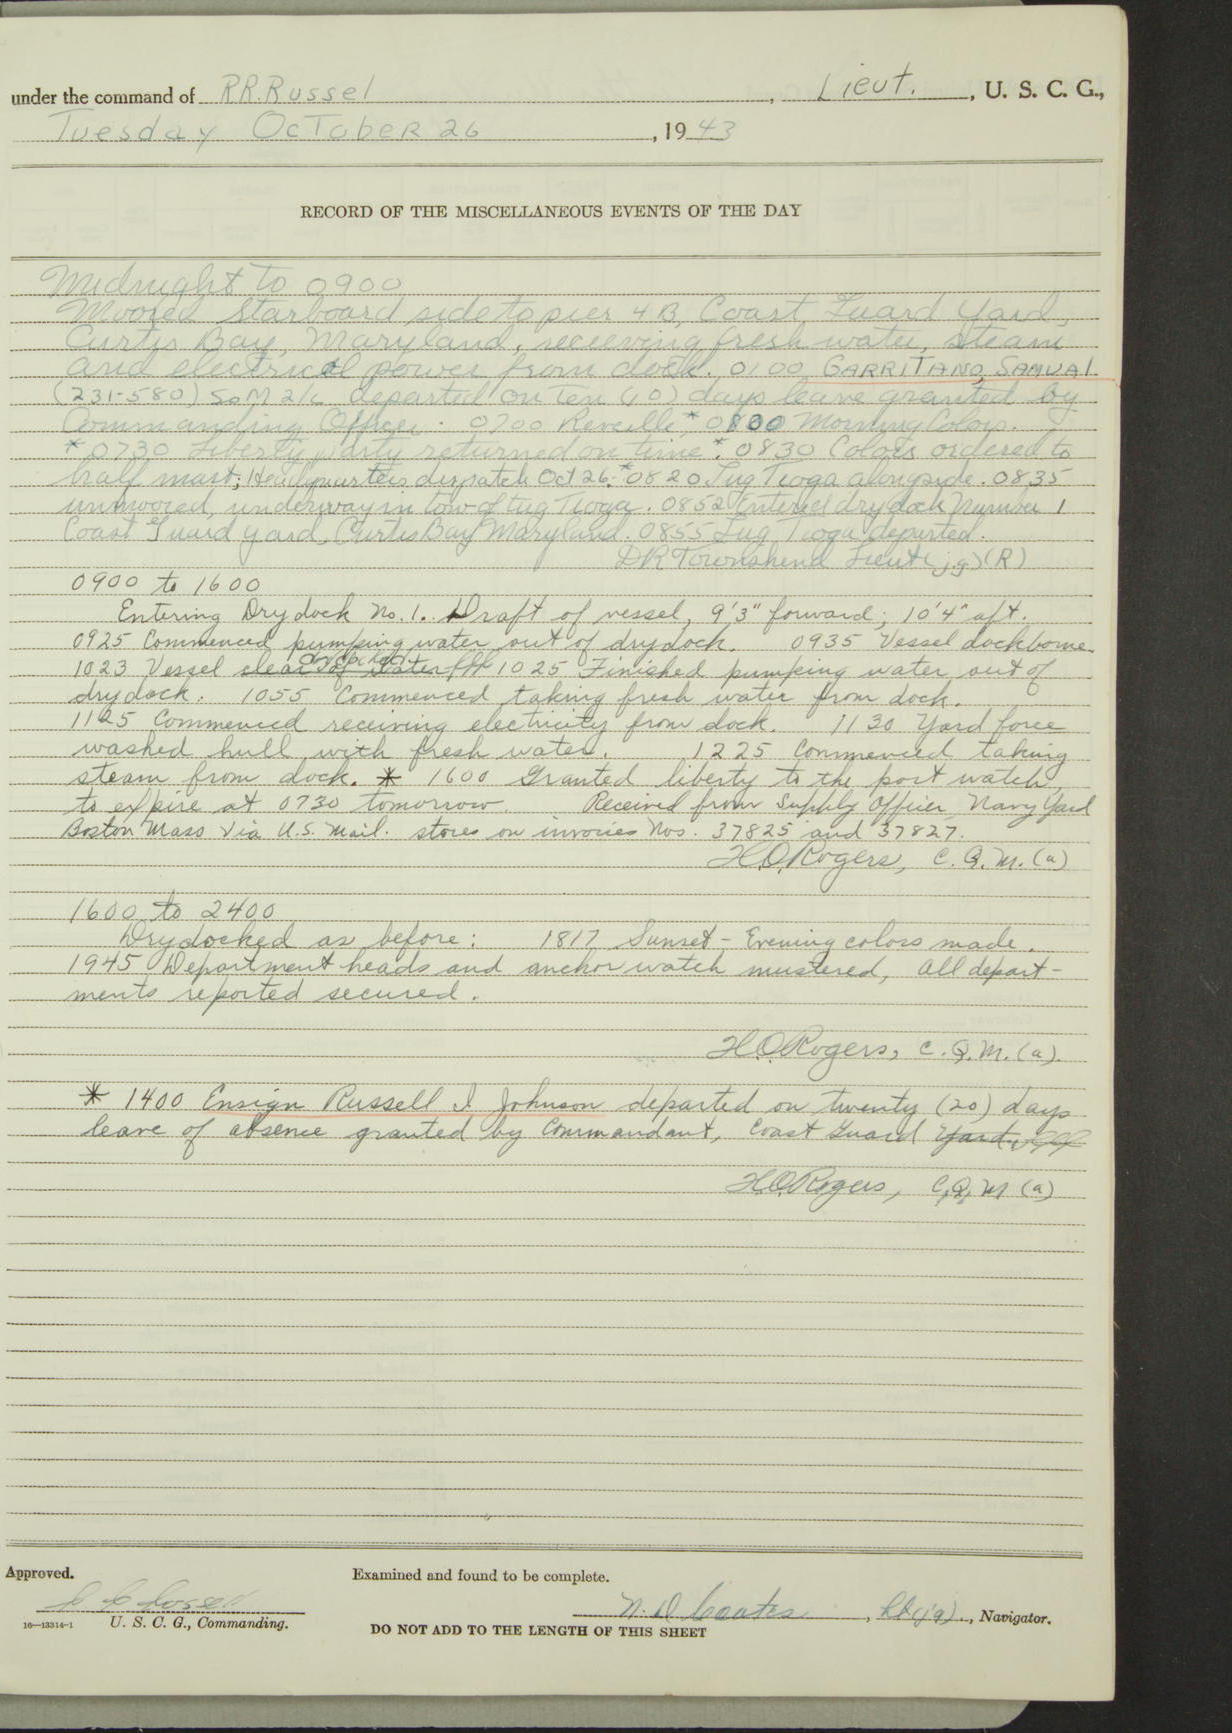 under the command of R.R. Russel, Lieut., U. S. C. G.,
Tuesday October 26, 1943
RECORD OF THE MISCELLANEOUS EVENTS OF THE DAY
Midnight to 0900
Moored Starboard side to pier 4B, Coast Guard Yard,
Curtis Bay, Maryland, receiving fresh water, steam
and electrical power from dock. 0100 GARRITANO, SAMUAL
(231-580) SoM 2/c departed on Ten (10) days leave granted by
Commanding Officer. 0700 Reveille * 0800 Morning Colors.
* 0730 Liberty party returned on time *. 0830 Colors ordered to
half mast; Headquarters dispatch Oct 26. * 0820 Tug Tioga alongside. 0835
unmoored, underway in tow of tug Tioga. 0852 Entered drydock Number 1
Coast Guard yard, Curtis Bay Maryland. 0855 Tug Tioga departed.
DR Townshend Lieut (j.g) (R)
0900 to 1600
Entering Drydock No. 1. Draft of vessel, 9'3" forward; 10'4" aft.
0925 Commenced pumping water out of drydock. 0935 Vessel dockborne.
1023 Vessel clear of water 1025 Finished pumping water out of
drydock. 1055 Commenced taking fresh water from dock.
1125 Commenced receiving electricity from dock. 1130 Yard force
washed hull with fresh water. 1225 Commenced taking
steam from dock. * 1600 Granted liberty to the port watch
to expire at 0730 tomorrow. Received from Supply Officer Navy Yard
Boston Mass via U.S. Mail. stores on invoices Nos. 37825 and 37827.
H.O. Rogers, C. Q. M. (a)
1600 to 2400
Drydocked as before: 1817 Sunset - Evening colors made.
1945 Department heads and anchor watch mustered, All depart-
ments reported secured.
H.O. Rogers, C. Q. M. (a).
* 1400 Ensign Russell I. Johnson departed on twenty (20) days
leave of absence granted by Commandant, Coast Guard Yard
H.O. Rogers, C, Q, M (a)
Approved.
Examined and found to be complete.
N. D. Coates, Lt (jg)., Navigator.
16—13314-1 U. S. C. G., Commanding.
DO NOT ADD TO THE LENGTH OF THIS SHEET